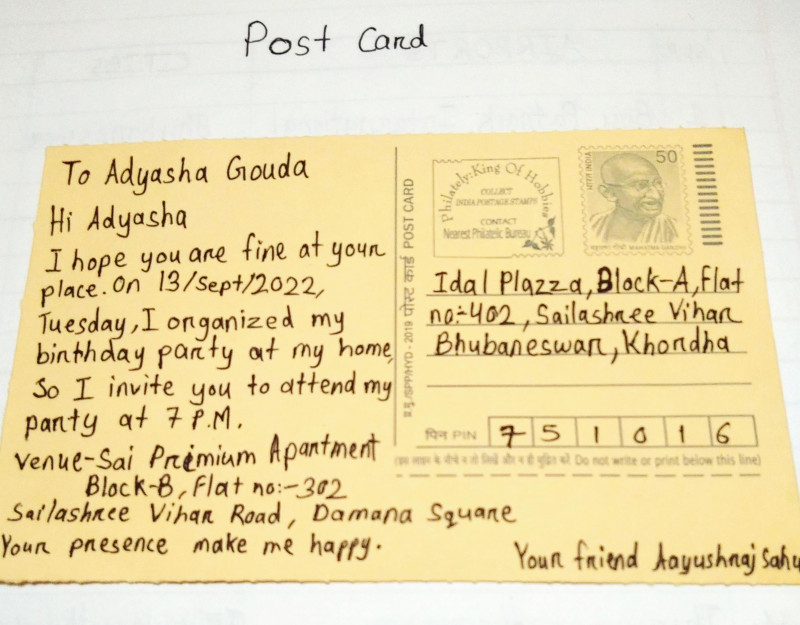 Post Card
To Adyasha Gouda
Hi Adyasha
I hope you are fine at your
place. On 13/Sept/2022,
Tuesday, I organized my
birthday party at my home,
So I invite you to attend my
party at 7 P.M.
Venue-Sai Premium Apartment
Block-B, Flat no:-302
Sailashree Vihar Road, Damana Square
Your presence make me happy.
Your friend Aayushraj Sahu
POST CARD
पोस्ट कार्ड
2019
Philately:King Of Hobbies
COLLECT
INDIA POSTAGE STAMPS
CONTACT
Nearest Philatelic Bureau
50
भारत INDIA
महात्मा गांधी MAHATMA GANDHI
Idal Plazza, Block-A, Flat
no:-402, Sailashree Vihar
Bhubaneswar, Khordha
पिन PIN 7 5 1 0 1 6
(इस लाइन के नीचे न तो लिखें और न ही मुद्रित करें Do not write or print below this line)